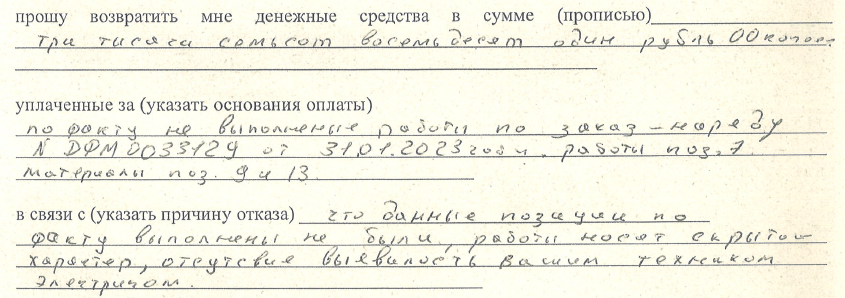 прошу возвратить мне денежные средства в сумме (прописью)
три тысяса семьсот восемьдесят один рубль 00 копеек
уплаченные за (указать основания оплаты)
по факту не выполненые работы по заказ-наряду
N DФМ0033129 от 31.01.2023 годы. работы поз. 7.
материалы поз. 9 и 13.
в связи с (указать причину отказа) что данные позиции по
факту выполнены не были, работы носят скрытой
характер, отсутсвие выявилость вашим техником
электриком.